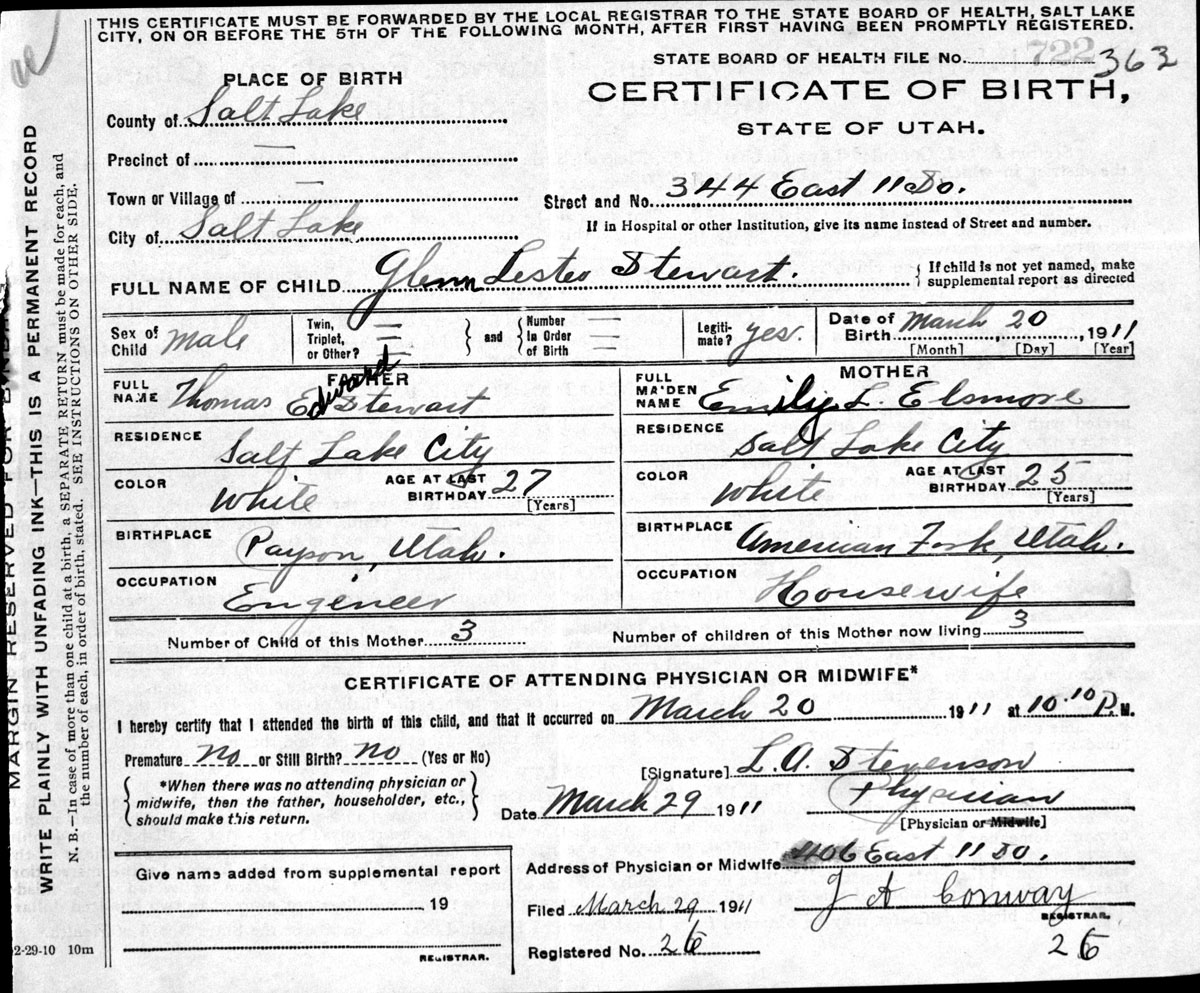 THIS CERTIFICATE MUST BE FORWARDED BY THE LOCAL REGISTRAR TO THE STATE BOARD OF HEALTH, SALT LAKE
CITY, ON OR BEFORE THE 5TH OF THE FOLLOWING MONTH, AFTER FIRST HAVING BEEN PROMPTLY REGISTERED.
STATE BOARD OF HEALTH FILE NO. 722 363
PLACE OF BIRTH
CERTIFICATE OF BIRTH,
STATE OF UTAH.
County of Salt Lake
Precinct of —
Town or Village of —
Street and No. 344 East 11 So.
City of Salt Lake
If in Hospital or other Institution, give its name instead of Street and number.
FULL NAME OF CHILD Glenn Lester Stewart. { If child is not yet named, make
supplemental report as directed
Sex of Child male
Twin, Triplet, or Other? — } and { Number In Order of Birth —
Legiti-mate? yes.
Date of Birth March 20, 1911
[Month] [Day] [Year]
FATHER
FULL NAME Thomas Edward Stewart
RESIDENCE Salt Lake City
COLOR White AGE AT LAST BIRTHDAY 27
[Years]
BIRTHPLACE Payson, Utah.
OCCUPATION Engineer
MOTHER
FULL MAIDEN NAME Emily L. Elsmore
RESIDENCE Salt Lake City
COLOR White AGE AT LAST BIRTHDAY 25
[Years]
BIRTHPLACE American Fork, Utah.
OCCUPATION Housewife
Number of Child of this Mother 3 Number of children of this Mother now living 3
CERTIFICATE OF ATTENDING PHYSICIAN OR MIDWIFE*
I hereby certify that I attended the birth of this child, and that it occurred on March 20 1911 at 10 10 P. M.
Premature no or Still Birth? no (Yes or No)
[Signature] L. A. Stevenson
{ *When there was no attending physician or
midwife, then the father, householder, etc.,
should make this return. }
Date March 29 1911 Physician
[Physician or Midwife]
Address of Physician or Midwife 406 East 11 So.
Give name added from supplemental report
19
REGISTRAR.
Filed March 29 1911 J A Conway
REGISTRAR.
Registered No. 26 26
2-29-10 10m
MARGIN RESERVED FOR
WRITE PLAINLY WITH UNFADING INK—THIS IS A PERMANENT RECORD
N. B.—In case of more than one child at a birth, a SEPARATE RETURN must be made for each, and
the number of each, in order of birth, stated. SEE INSTRUCTIONS ON OTHER SIDE.